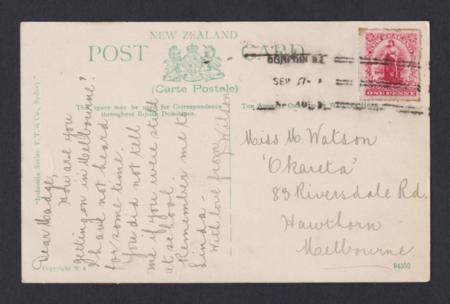 NEW ZEALAND
POST CARD
(Carte Postale)
This space may be used for Correspondence
throughout British Dominions.
The
Dear Madge,
How are you
getting on in Melbourne?
I have not heard
for some time.
You did not tell
me if you were still
at school.
Remember me to
Linda.
With love from
SEP
ONE PENNY
Miss M. Watson
"Okareta"
83 Riversdale Rd.
Hawthorn
Melbourne.
Series F. T. & Co., Sydney.
Copyright